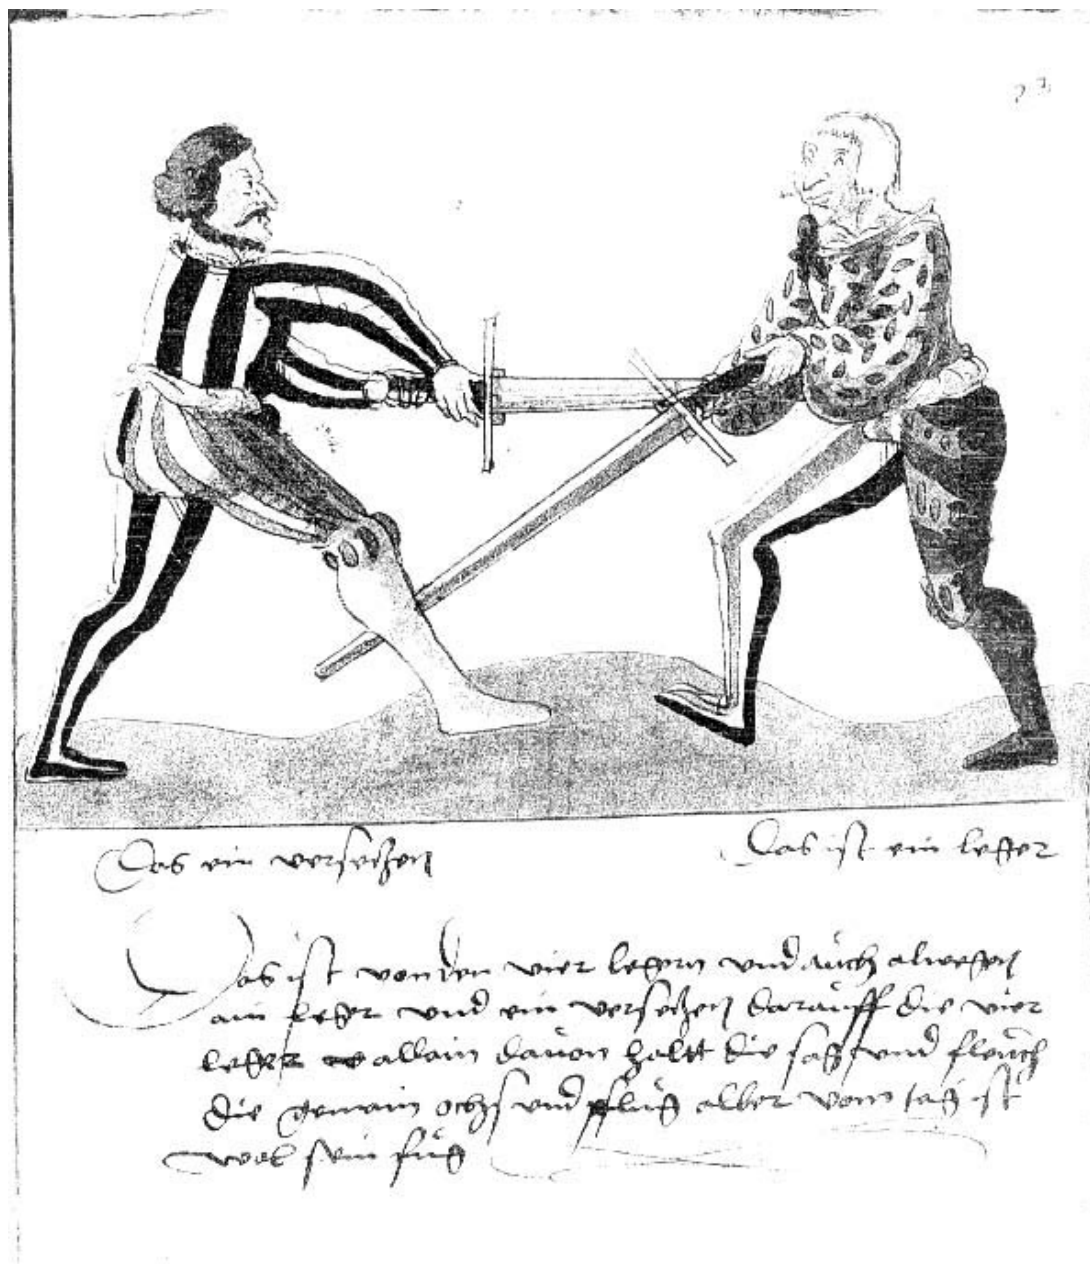 Das ein versetzen
Das ist ein leger
Das ist von den vier legern und auch alwegen
ain leger und ein versetzen darauff die vier
leger allain davon haltt die sag und fleuch
die gemain ochs und pflug alber vom tag ist
wol sein fug